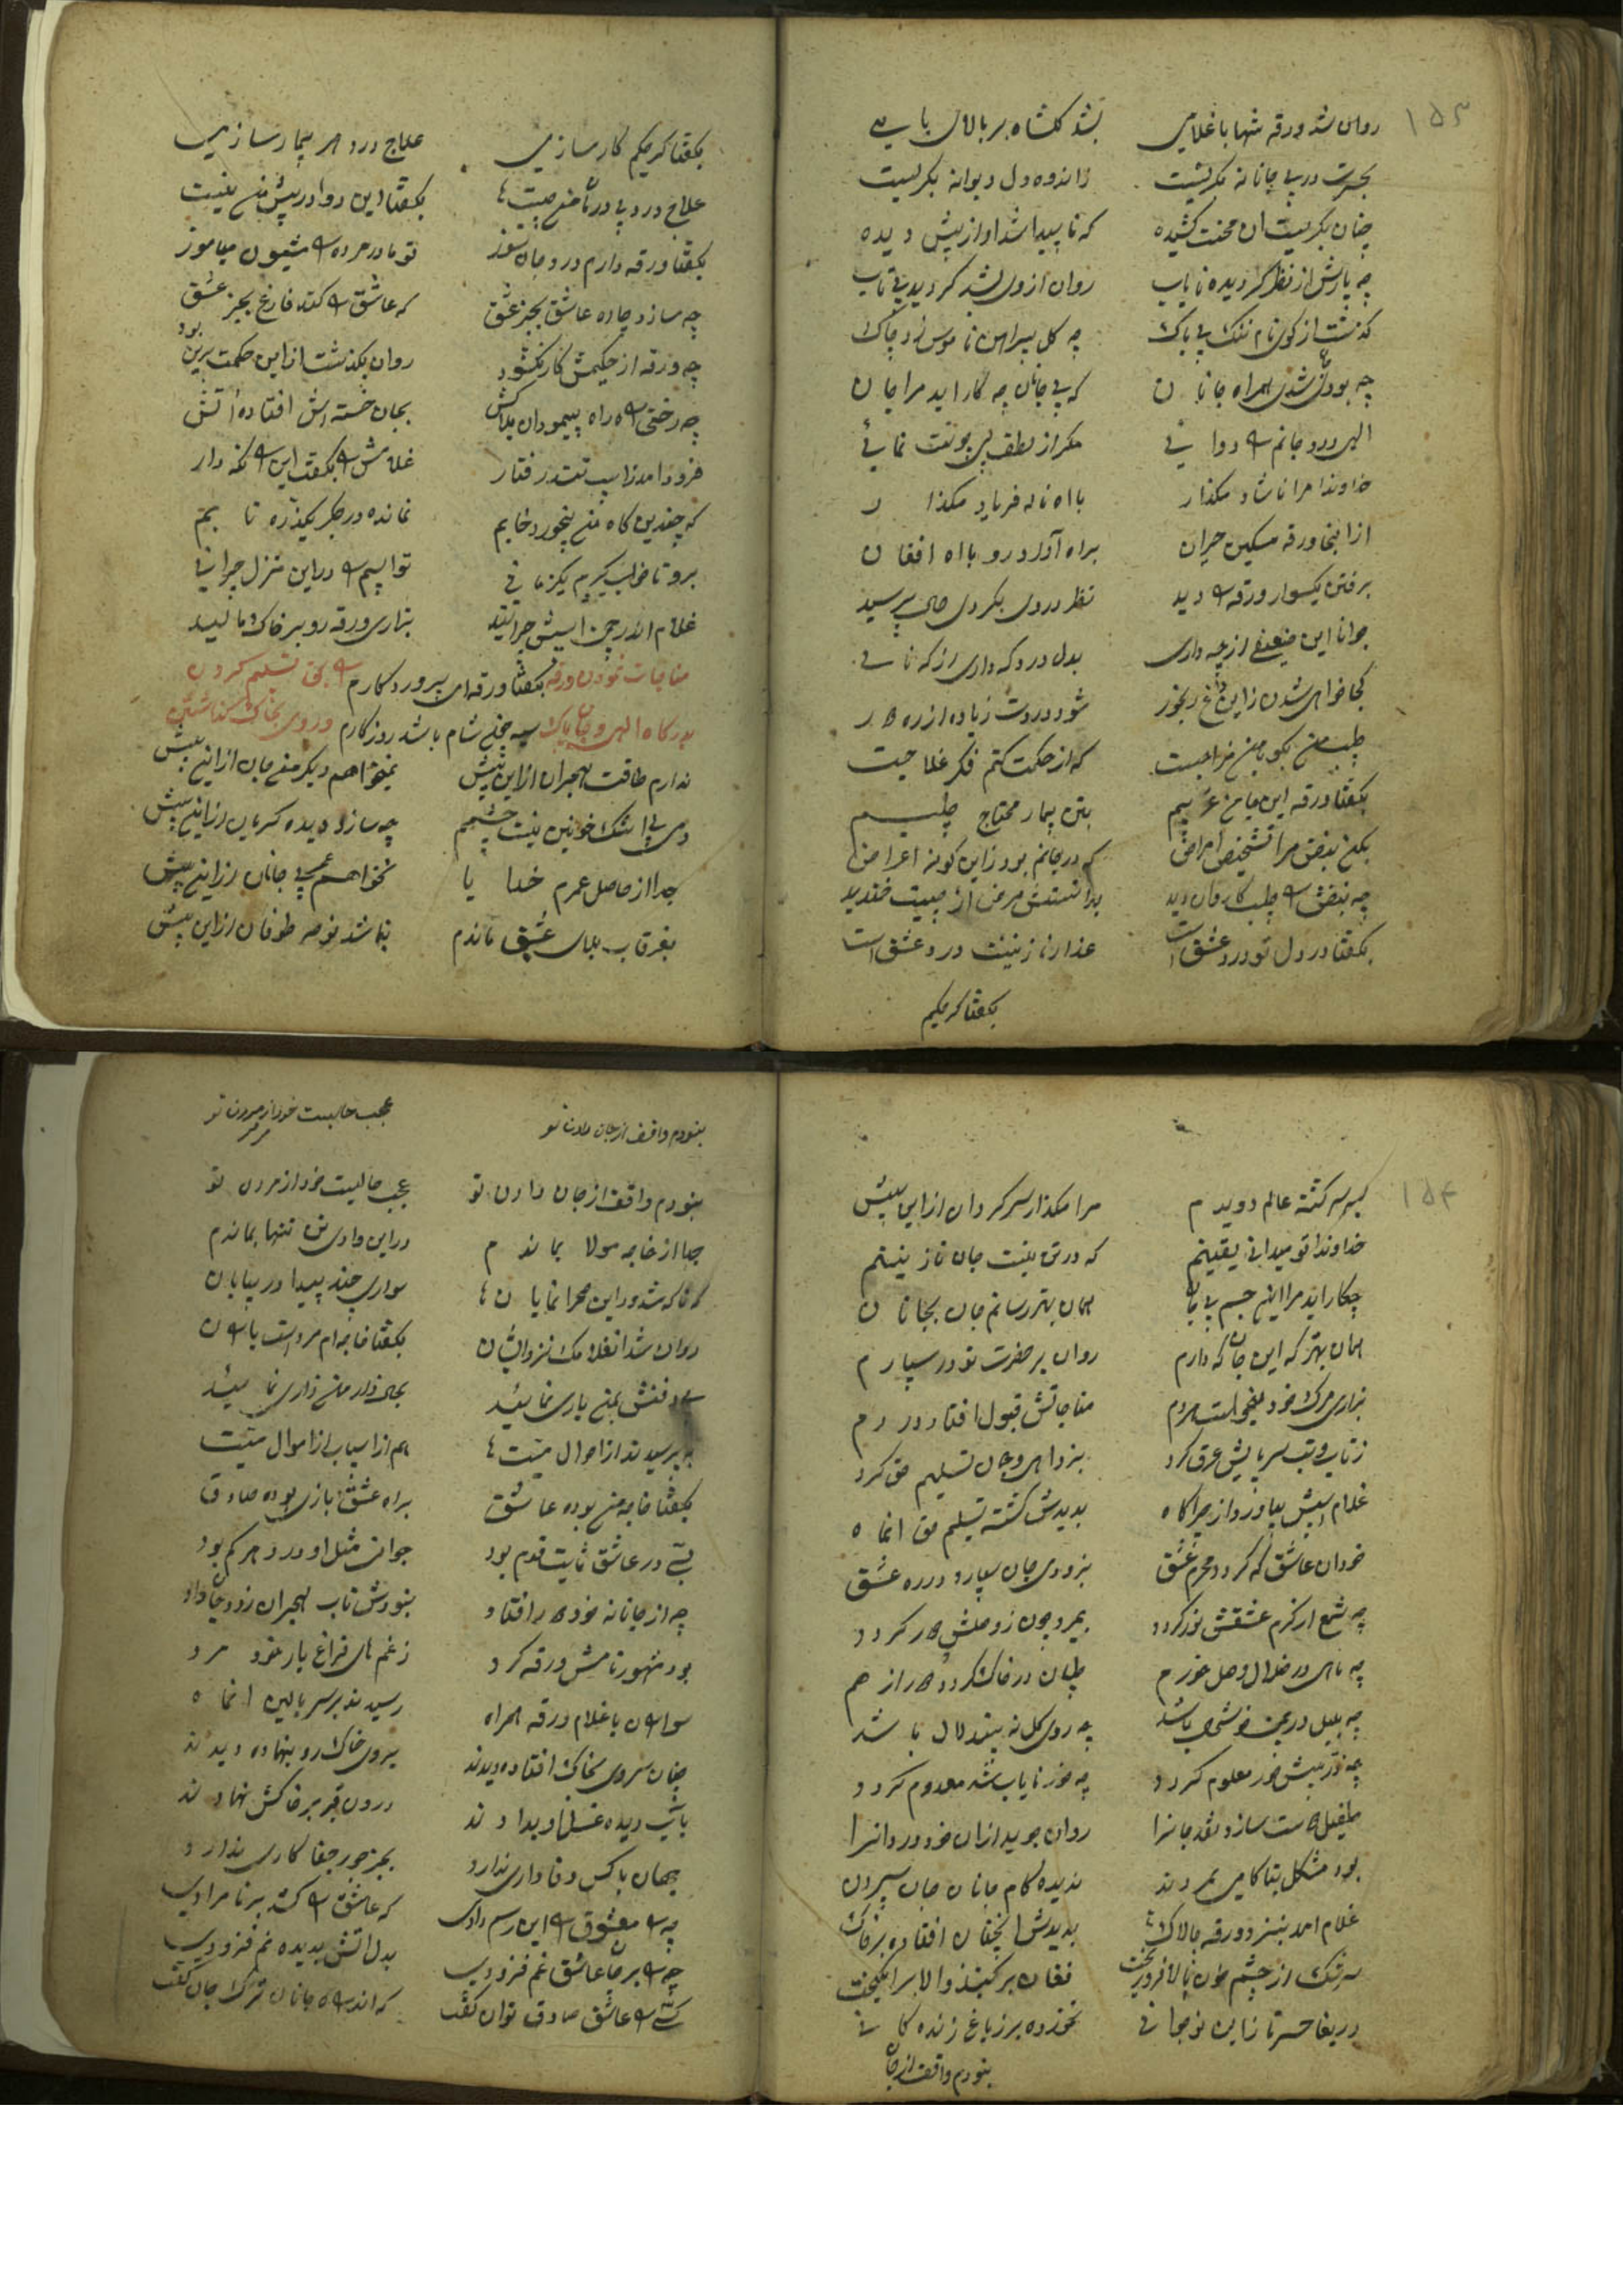 ۱۵۳
روان شد ورقه تنها با غلامی بشد گلشاه بر بالای بامی
بحسرت در پی جانانه بگریست ز اندوه دل دیوانه بگریست
چنان بگریست ان محنت کشیده که ناپیدا شد او از پیش دیده
چه یارش از نظر گردیده نایاب روان از وی بشد گردید بی تاب
گذشت از کوی نام ننگ بی باک چه گل پیراهن ناموس زد چاک
چه بودی می شدی همراه جانان که بی جانان چه کار اید مرا جان
الهی درد جانم را دوا نی مگر از لطف بی چونت نمائی
خداوندا مرا ناشاد مگذار با اه ناله فریاد مگذار
از اینجا ورقه مسکین حیران براه آورد رو با اه افغان
برفتن یکسوار ورقه را دید نظر در وی بکردی حال پرسید
جوانا این ضعیفی از چه داری بدل درد که داری از که نالی
کجا خواهی شدن زاین داغ رنجور شود دردت زیاده از ره دور
طبیب من بگو با من مزاجت که از حکمت کنم فکر علاجت
بگفتا ورقه این جا من غریبم بتن بیمار محتاج طبیبم
بکن نبضی مرا تشخیص امراض که در جانم بود زاین گونه اعراض
چه نبضش را طبیب کاردان دید بدانستش مرض از چیست خندید
بگفتا در دل تو درد عشق است عذار نازنینت درد عشق است
بگفتا گر حکیم
بگفتا گر حکیم کارسازی علاج درد هر بیمار سازی
علاج درد بی درمان من چیست بگفتا این دوا در پیش من نیست
بگفتا ورقه دارم درد جان سوز تو مادر مرده را شیون میاموز
چه سازد چاره عاشق بجز عشق که عاشق را کند فارغ بجز عشق
چه ورقه از حکیمش کار نگشود روان بگذشت از این حکمت برین بود
چه رختی راه پیمودان بلاکش بجان خسته اش افتاده آتش
فرود امد ز اسپ تند رفتار غلامش را بگفت این را نگه دار
که چندین گاه من بیخورد خابم نمانده در جگر یکذره تابم
برو تا خواب گیرم یکزمانی تو اسپم را در این منزل چرانی
غلام اندر چمن اسپش چرانید بزاری ورقه رو بر خاک مالید
مناجات نمودن ورقه بگفتا ورقه ای پروردگارم را بحق تسلیم کردن
بدرگاه الهی و جان پاک سیه چون شام باشد روزگارم و روی بخاک گذاشتن
ندارم طاقت هجران از این پیش نمیخواهم دیگر من جان از این پیش
دمی بی اشک خونین نیست چشمم چه سازد دیده گریان از این پیش
جدا از حاصل عمرم خدایا نخواهم عمر بی جانان از این پیش
بغرقاب بلای عشق ماندم نباشد نوح را طوفان از این پیش
۱۵۴
بسر سرگشته عالم دویدم مرا مگذار سرگردان از این پیش
خداوندا تو میدانی یقینم که در تن نیست جان نازنینم
چکار اید مرا این جسم بی جان همان بهتر رسانم جان بجانان
همان بهتر که این جان که دارم روان بر حضرت تو در سپارم
بزاری مرگ خود میخواست هر دم مناجاتش قبول افتاد در دم
ز تاب و تب سراپایش عرق کرد بزد اهی و جان تسلیم حق کرد
غلام اسپش بیاورد از چراگاه بدیدش گشته تسلیم حق انماه
خود ان عاشق که گردد محرم عشق بزودی جان سپارد در ره عشق
چه شمع ار گرم عشقش نور گردد بمیرد چون ز وصلش دور گردد
چه ماهی در ظلال وصل خورم طپان در خاک گردد دور از هم
چه بلبل در چمن خوشحال باشد چه روی گل نه بیند لال باشد
چه ذره پیش خور معلوم گردد چه خور نایاب شد معدوم گردد
طفیل دوست سازد نقد جانرا روان جوید از ان خود در دانرا
بود مشکل بناکامی بمردند ندیده کام جانان جان سپردن
غلام امد بنزد ورقه چالاک بدیدش انچنان افتاده بر خاک
سرشک از چشم خون پالا فرو ریخت فغان بر گنبذ والا برانگیخت
دریغا حسرتا زاین نوجوانی نخورده بر ز باغ زنده گانی
بنودم واقف از جان
بنودم واقف از جان دادن تو عجب حالیست خود از مردن تو
بنودم واقف از جان دادن تو عجب حالیست خود از مردن تو
جدا از خاجه مولا بماندم در این وادی من تنها بماندم
که ناگه شد در این صحرا نمایان سواری چند پیدا در بیابان
روان شد انغلامک نزد ایشان بگفتا خاجه ام مرد است یاران
بدفنش بمن یاری نمائید بحال زار من زاری نمائید
به پرسیدند از احوال میت هم از اسباب از اموال میت
بگفتا خاجه من بوده عاشق براه عشق بازی بوده صادق
بسی در عاشقی ثابت قدم بود جوانی مثل او در دهر کم بود
چه از جانانه خود دور افتاد بنودش تاب هجران زود جان داد
بود مشهور نامش ورقه گرد ز غم های فراغ یار خود مرد
سواران با غلام ورقه همراه رسیدند بر سر بالین انماه
چنان سروی بخاک افتاده دیدند بروی خاک رو بنهاده دیدند
بآب دیده غسل او بدادند درون قبر بر خاکش نهادند
جهان با کس وفاداری ندارد بجز جور جفا کاری ندارد
چه را معشوق را این رسم دادی که عاشق را کشد بر نامرادی
چه را بر جان عاشق غم فزودی بدل اتش بدیده نم فزودی
کسی را عاشق صادق توان گفت که اندر راه جانان ترک جان گفت